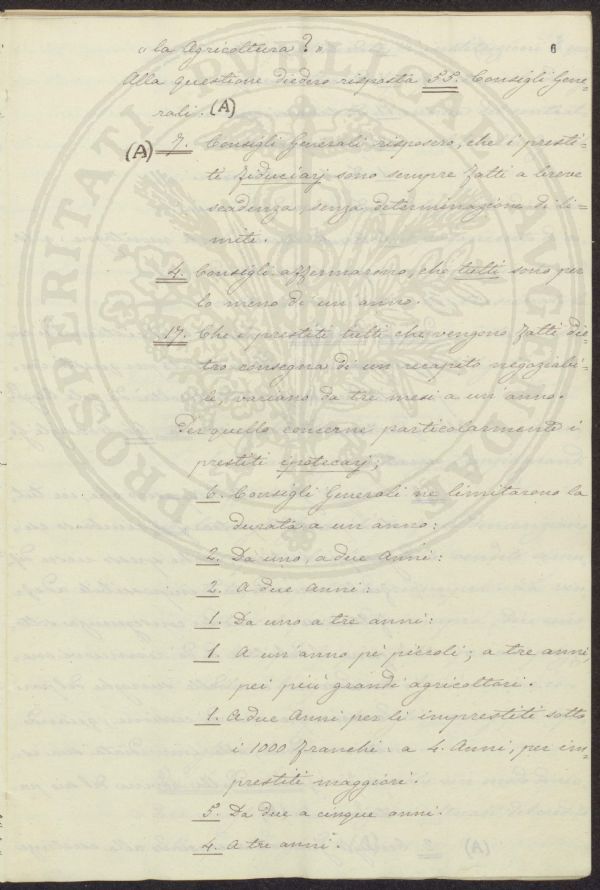 6
« la Agricoltura? »
Alla questione diedero risposta 55. Consigli Gene=
rali. (A)
(A) 7. Consigli Generali risposero, che i presti=
ti fiduciarj sono sempre fatti a breve
scadenza, senza determinazione di li=
mite.
4. Consigli affermarono, che tutti sono per
lo meno di un anno.
17. Che i prestiti tutti che vengono fatti die=
tro consegna di un recapito negoziabi=
le, variano da tre mesi a un anno.
Per quello concerne particolarmente i
prestiti ipotecarj;
6. Consigli Generali ne limitarono la
durata a un anno:
2. Da uno, a due Anni:
2. A due Anni:
1. Da uno a tre anni:
1. A un'anno pe' piccoli; a tre anni,
pei più grandi agricoltori.
1. A due Anni per li imprestiti sotto
i 1000 franchi: a 4. Anni, per im=
prestiti maggiori.
5. Da due a cinque anni.
4. A tre anni.
PROSPERITATI PUBLICAE AUGENDAE